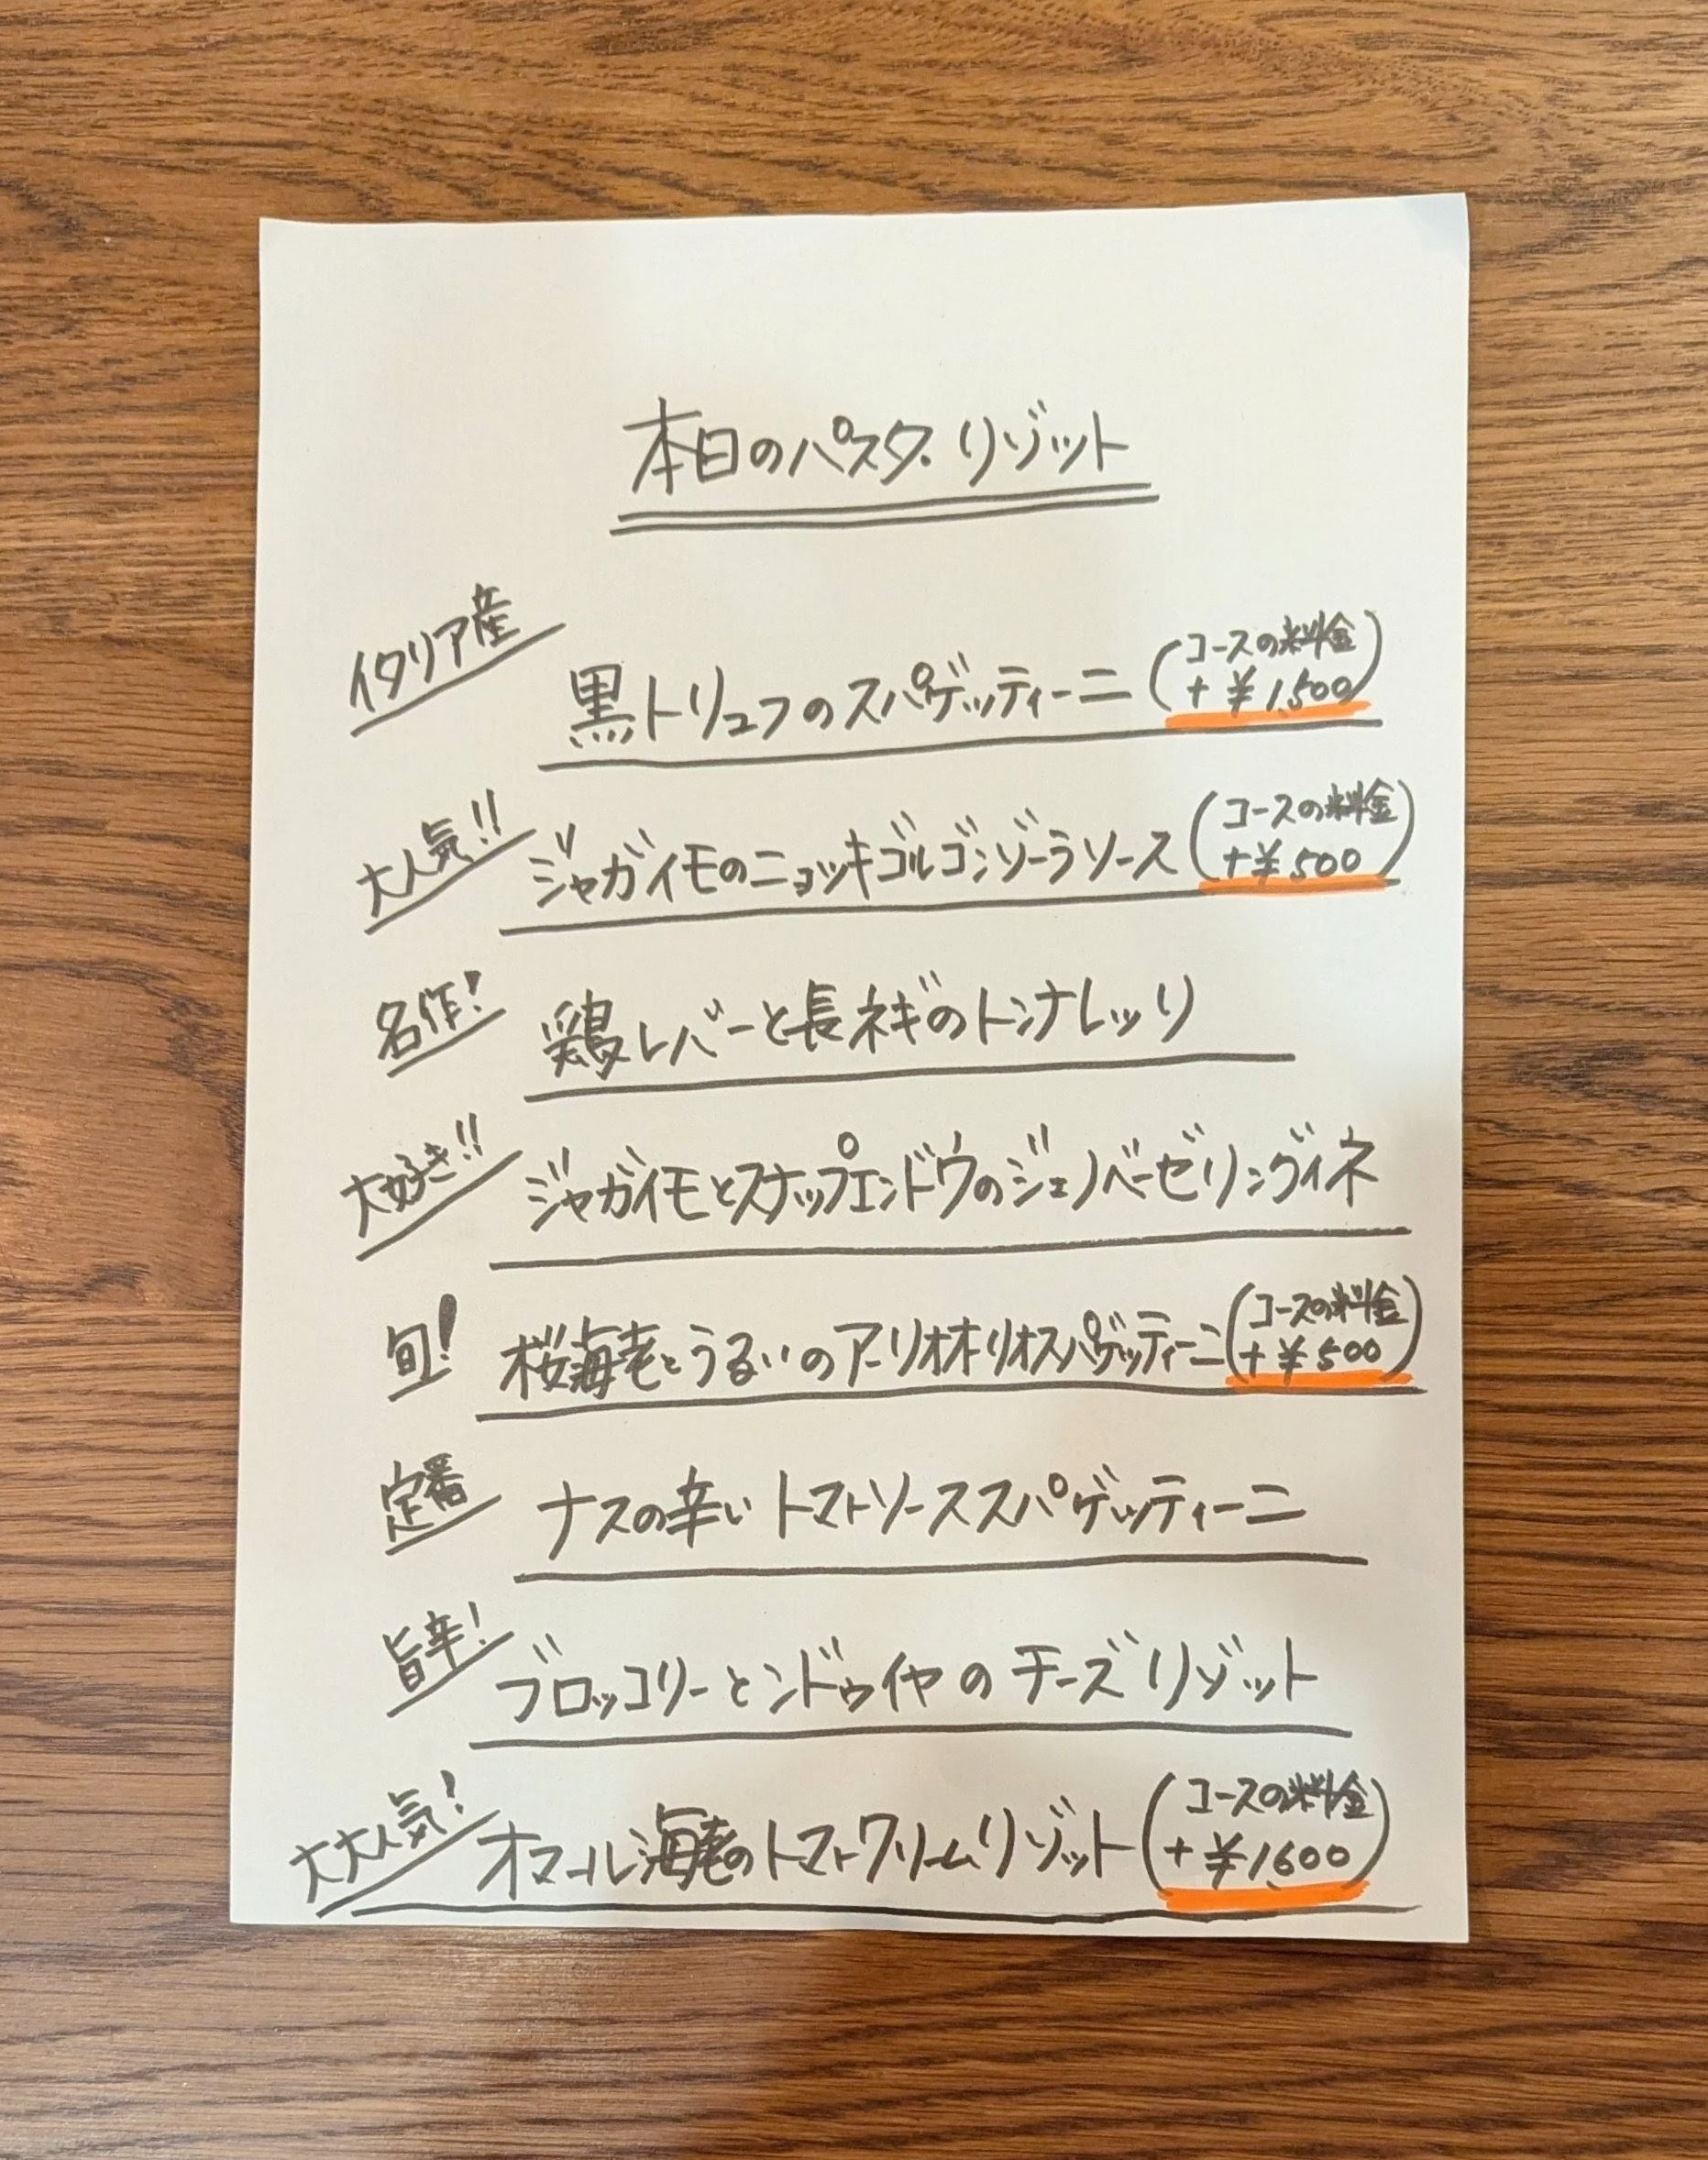 本日のパスタ. リゾット
イタリア産
黒トリュフのスパゲッティーニ (コースの料金
+ ¥1,500)
大人気!!
ジャガイモのニョッキゴルゴンゾーラソース (コースの料金
+¥500)
名作!
鶏レバーと長ネギのトンナレッリ
大好き!!
ジャガイモとスナップエンドウのジェノベーゼリングイネ
旬!
桜海老とうるいのアーリオオーリオスパゲッティーニ (コースの料金
+ ¥500)
定番
ナスの辛いトマトソーススパゲッティーニ
旨辛!
ブロッコリーとンドゥイヤのチーズリゾット
大大人気!
オマール海老のトマトクリームリゾット (コースの料金
+ ¥1,600)